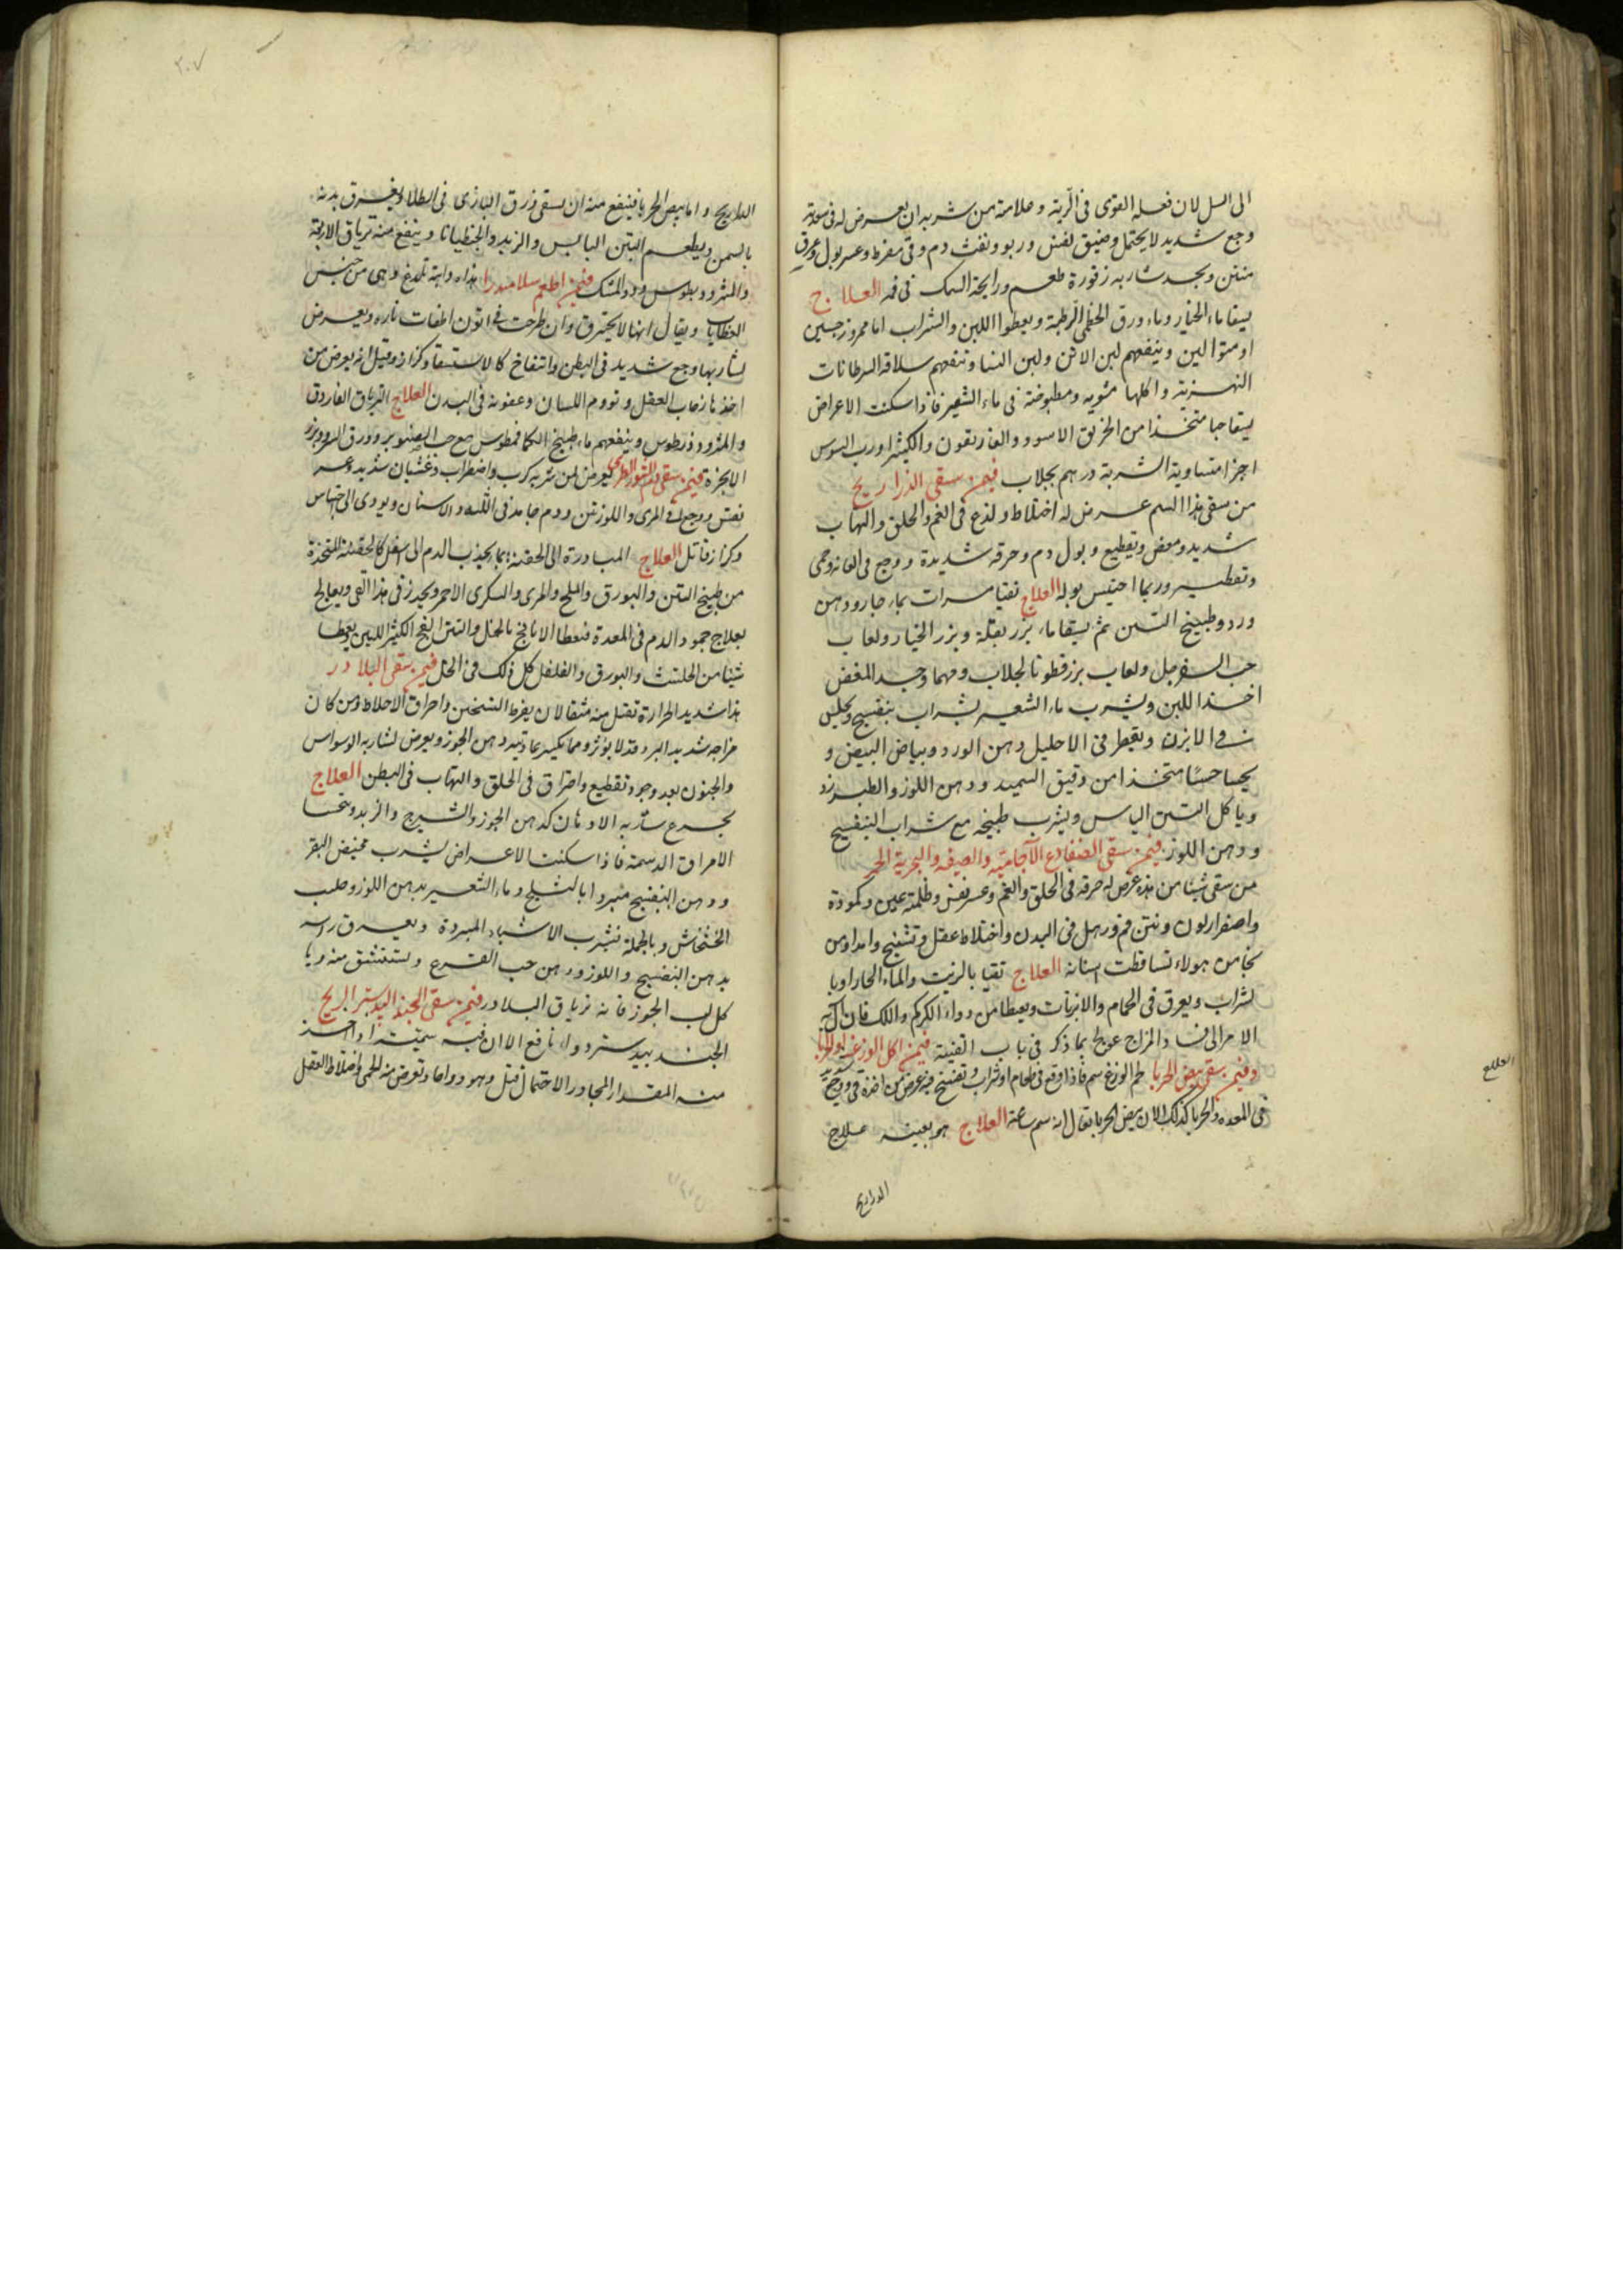 الى السل لان فعله القوى فى الرية وعلامة من شربه ان يعرض له فى معدته
وجع شديد لا يحتمل وضيق نفس وربو ونفث دم وقى مفرط وعسر بول وعرق
منتن ويجد شاربه زفورة طعم ورايحة السمك فى فمه العلاج
يسقا ماء الخيار وماء ورق الخطمى الرطبة ويعطوا اللبن والشراب اما ممزوجين
او متوالين وينفعهم لبن الاتن ولبن النسا وتنفعهم سلاقة السرطانات
النهرية واكلها مشوية ومطبوخة فى ماء الشعير فاذا سكنت الاعراض
يسقا حبا متخذا من الخربق الاسود والغاريقون والكثيرا ورب السوس
اجزا متساوية الشربة درهم بجلاب فيمن سقى الذراريح
من سقى هذا السم عرض له اختلاط ولذع فى الفم والحلق والتهاب
شديد ومغص وتقطيع وبول دم وحرقة شديدة ووجع فى العانة وحمى
وتقطير وربما احتبس بوله العلاج تقيا مرات بماء حار ودهن
ورد وطبيخ التين ثم يسقا ماء بزر بقلة وبزر الخيار ولعاب
حب السفرجل ولعاب بزر قطونا بجلاب ومهما وجد المغص
اخذ اللبن ويشرب ماء الشعير بشراب بنفسج ويجلس
فى الابزن ويقطر فى الاحليل دهن الورد وبياض البيض و
يحسا حسًا متخذا من دقيق السميد ودهن اللوز والطبرزد
وياكل التين اليابس ويشرب طبيخه مع شراب البنفسج
ودهن اللوز فيمن سقى الضفادع الآجامية والصيفية والبحرية الحمر
من سقى شيئا من هذه عرض له حرقة فى الحلق والفم وعسر نفس وظلمة عين وكمودة
واصفرار لون ونتن فم ورهل فى البدن واختلاط عقل وتشنج وامداوس
نجا من هولاء تساقطت اسنانه العلاج تقيا بالزيت والماء الحار او با
لشراب ويعرق فى الحمام والابزنات ويعطا من دواء الكركم واللك فان آل به
الامر الى فساد المزاج عولج بما ذكر فى باب القنية فيمن اكل الوزغ او الحربا
وفيمن سقى بيض الحربا لحم الوزغ سم فاذا وقع فى طعام او شراب وتفسخ فيه عرض من اخذه قى ووجع شديد
فى المعدة والحربا كذلك الا ان بيض الحربا يقال انه سم ساعة العلاج هو بعينه علاج
الذراريح
العلاج
٢٠٧
الذاريح واما بيض الحربا فينفع منه ان يسقى ذرق البازى فى الطلا ويغرق بدنه
بالسمن ويطعم التين اليابس والزبد والجنطيانا وينفع منه ترياق الاربعة
والمثروديطوس ودوا المسك فيمن اطعم سلامندرا هذه دابة تلدغ وهى من جنس
العظايات ويقال انها لا يحترق وان طرحت فى اتون اطفات ناره ويعرض
لشاربها وجع شديد فى البطن وانتفاخ كالاستسقا وكزاز وقيل انه يعرض من
اخذها ذهاب العقل وتورم اللسان وعفونة فى البدن العلاج الترياق الفاروق
والمثروديطوس وينفعهم ماء طبيخ الكمافيطوس مع حب الصنوبر وورق السرو وبزر
الانجرة فيمن سقى الدم الثور الطرى يعرض لمن شربه كرب واضطراب وغشيان شديد وعسر
نفس ووجع فى المرى واللوزتين ودم جامد فى اللثة والاسنان ويودى الى اختناس
وكزاز قاتل العلاج المبادرة الى الحقنة بما يجذب الدم الى اسفل كالحقنة المتخذة
من طبيخ التين والبورق والملح والمرى والسكر الاحمر ويحذر فى هذا القى ويعالج
بعلاج جمود الدم فى المعدة فيعطا الانافح بالخل والتين الفج الكثير اللبن يعطا
شيئا من الحلتيت والبورق والفلفل كل ذلك فى الخل فيمن سقى البلادر
هذا شديد الحرارة تقتل منه مثقالان بفرط التسخين واحراق الاخلاط ومن كان
مزاجه شديد البرد قد لا يؤثر ومما يكسر عاديته دهن الجوز ويعرض لشاربه الوسواس
والجنون بعد وجود تقطيع واحتراق فى الحلق والتهاب فى البطن العلاج
يجرع شاربه الادهان كدهن الجوز والشيرج والزبد ويتحسا
الامراق الدسمة فاذا سكنت الاعراض يشرب مخيض البقر
ودهن البنفسج مبردا بالثلج وماء الشعير بدهن اللوز وحليب
الخشخاش وبالجملة فيشرب الاشياء المبردة ويعرق راسه
بدهن البنفسج واللوز ودهن حب القرع ويستنشق منه ويا
كل لب الجوز فانه ترياق البلادر فيمن سقى الجندبيدستر الريح
الجندبيدستر دواء نافع الا ان فيه سميته اذا اخذ
منه المقدار المجاوز الاحتمال قتل وهو دواء حاد وتعرض منه الحمى واختلاط العقل